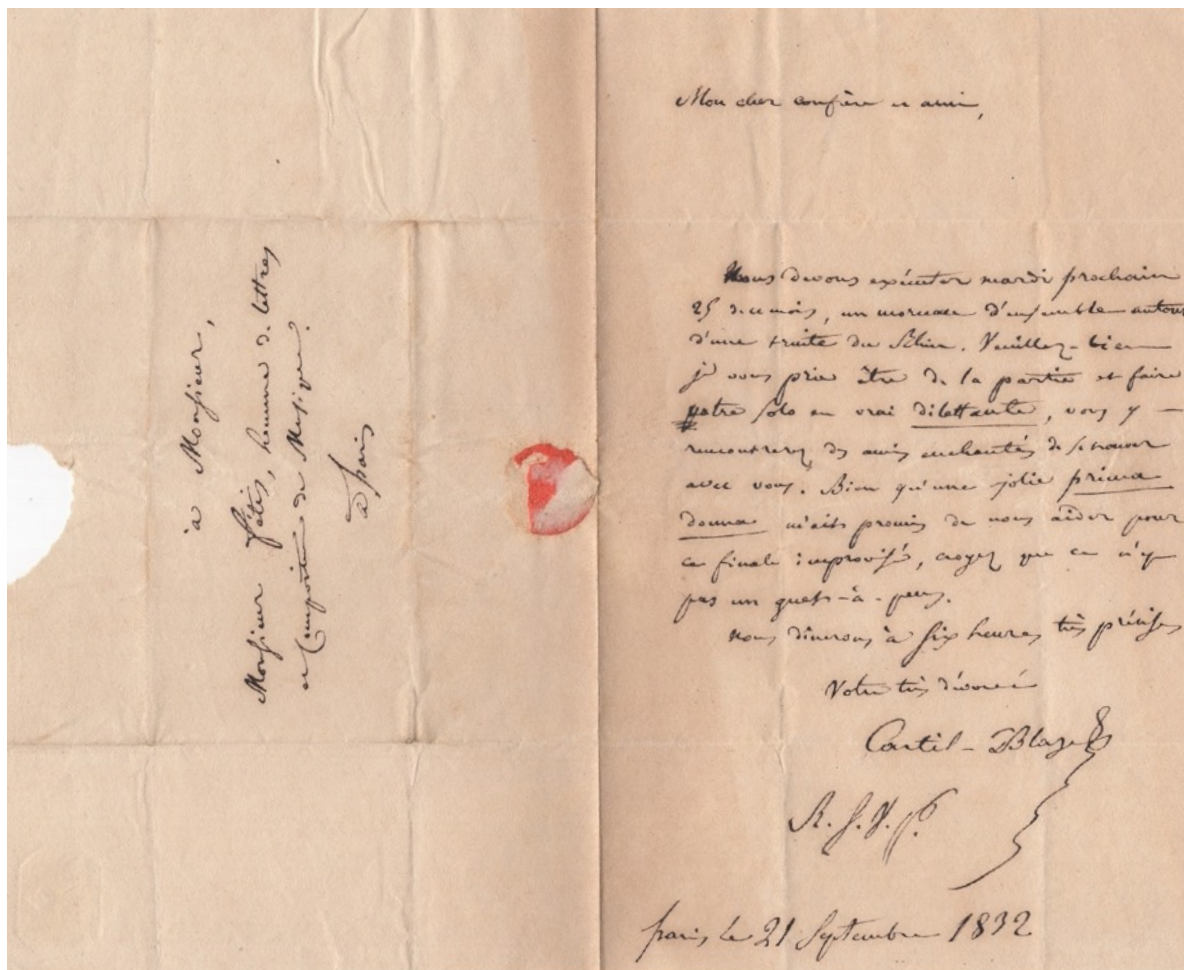 à Monsieur,
Monsieur fétis, homme de lettres
et Compositeur de Musique.
à paris
Mon cher confrère et ami,
Nous devons exécuter mardi prochain
25 de ce mois, un morceau d'ensemble autour
d'une truite du Rhin. Veuillez-bien
je vous prie être de la partie et faire
votre solo en vrai dilettante, vous y
rencontrerez des amis enchantés de se trouver
avec vous. Bien qu'une jolie prima
donna m'ait promis de nous aider pour
ce finale improvisé, croyez que ce n'est
pas un guet-à-pens.
Nous dinerons à six heures très précises
Votre très dévoué
Castil-Blaze
R.S.V.P.
paris le 21 Septembre 1832